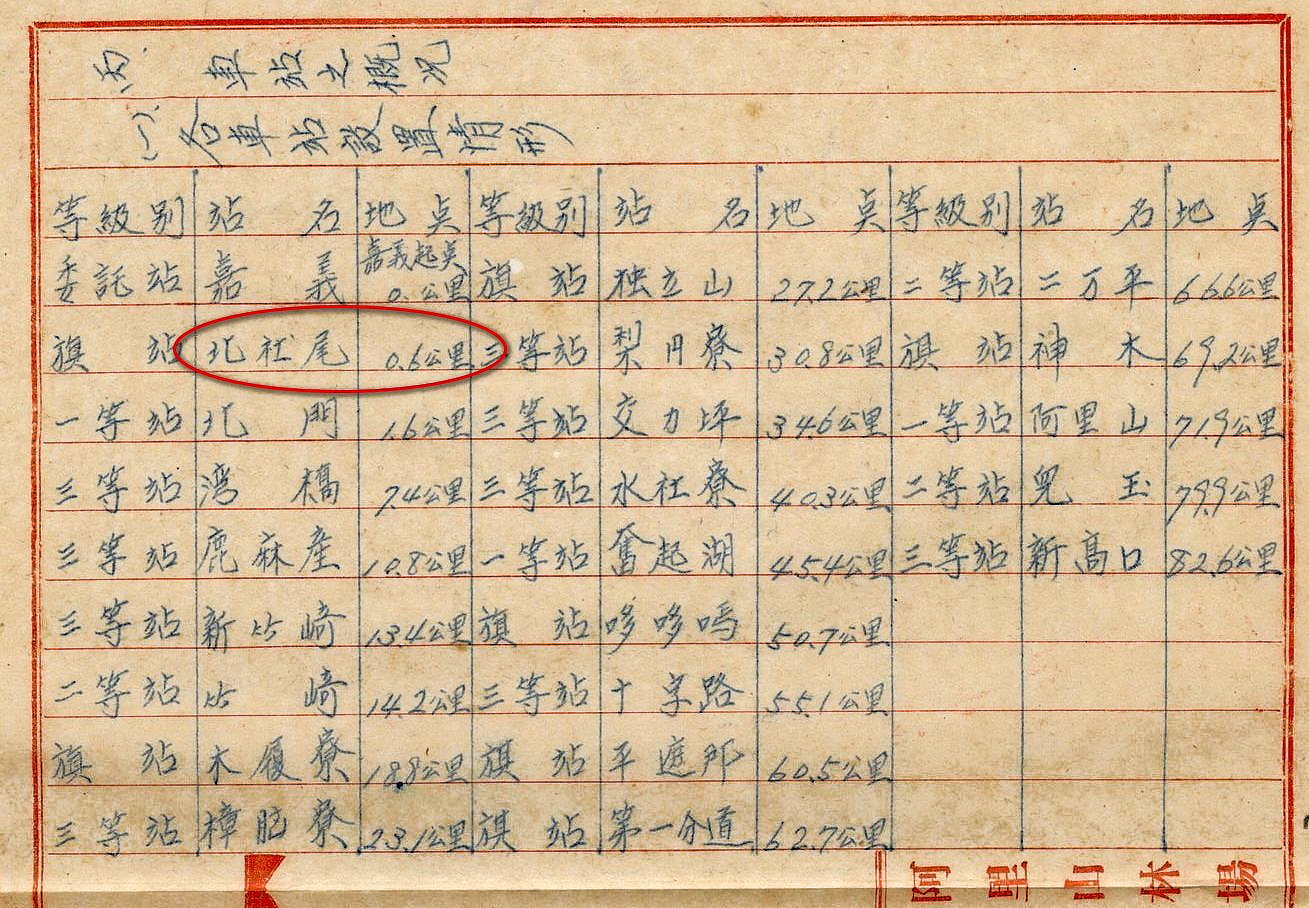 丙、車站之概況
(一)、各車站設置情形
等級別 站名 地点 等級別 站名 地点 等級別 站名 地点
委託站 嘉義 嘉義起点 0.公里 旗站 独立山 27.2公里 二等站 二万平 66.6公里
旗站 北社尾 0.6公里 三等站 梨円寮 30.8公里 旗站 神木 69.2公里
一等站 北門 1.6公里 三等站 交力坪 34.6公里 一等站 阿里山 71.9公里
三等站 湾橋 7.4公里 三等站 水社寮 40.3公里 二等站 兒玉 79.9公里
三等站 鹿麻產 10.8公里 一等站 奮起湖 45.4公里 三等站 新高口 82.6公里
三等站 新竹崎 13.4公里 旗站 哆哆嗎 50.7公里
二等站 竹崎 14.2公里 三等站 十字路 55.1公里
旗站 木履寮 18.8公里 旗站 平遮那 60.5公里
三等站 樟脳寮 23.1公里 旗站 第一分道 62.7公里
阿里山林場